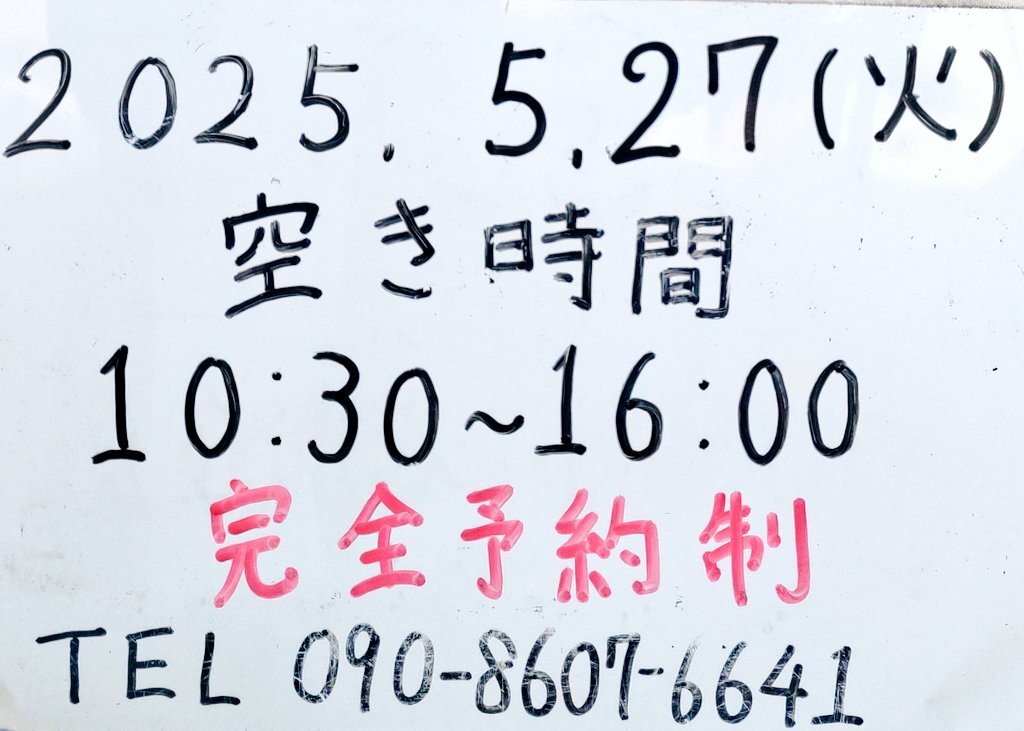 2025.5.27(火)
空き時間
10:30~16:00
完全予約制
TEL 090-8607-6641